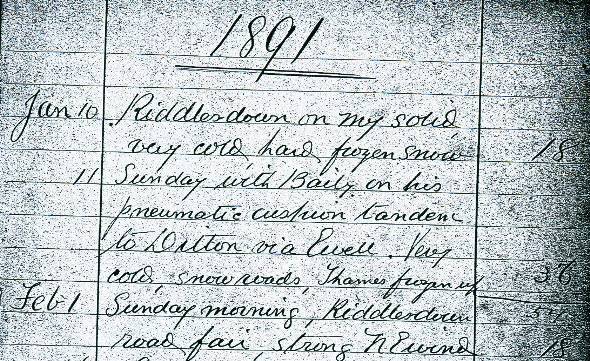 1891
Jan 10 Riddlesdown on my solid
very cold, hard frozen snow 18
11 Sunday with Baily on his
pneumatic cushion tandem
to Ditton via Ewell. Very
cold, snow roads, Thames frozen up 36
Feb 1 Sunday morning, Riddlesdown 54
road fair, strong N E wind 18